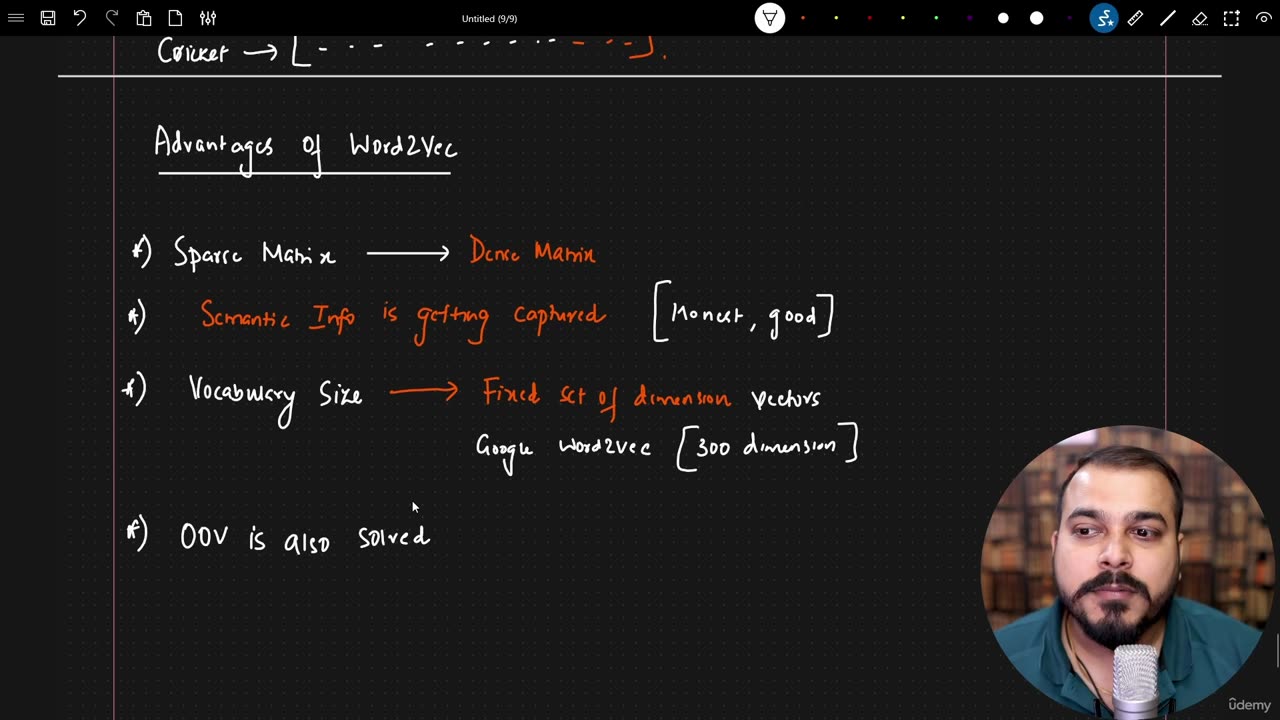 Untitled (9/9)
Cricket → [ - - - - - - - - - - - - - ].
Advantages of Word2Vec
*) Sparse Matrix → Dense Matrix
*) Semantic Info is getting captured [Honest, good]
*) Vocabulary Size → Fixed set of dimension vectors
Google Word2vec [300 dimension]
*) OOV is also solved
ûdemy